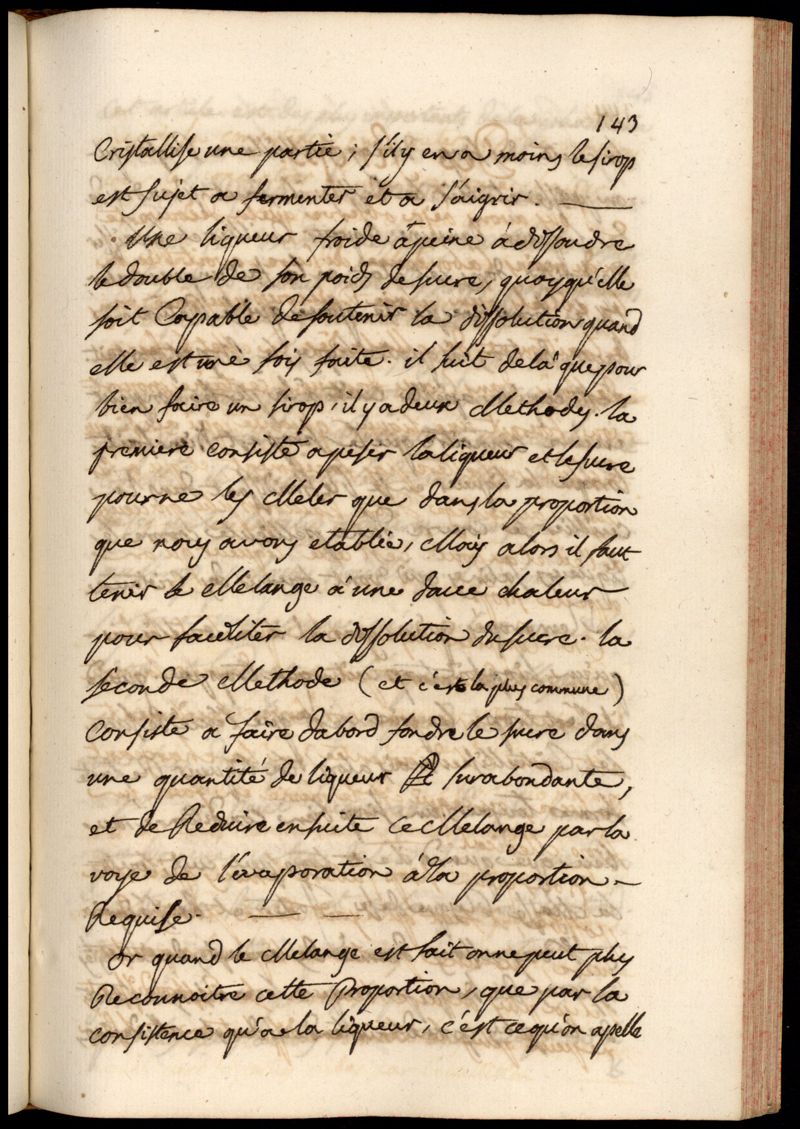 143
Cristallise une partie; s'il y en a moins le sirop
est sujet a fermenter et a s'aigrir.
Une liqueur froide à peine à dissoudre
le double de son poids de sucre, quoyqu'elle
soit Capable de soutenir la dissolution quand
elle est une fois faite. il suit de là que pour
bien faire un sirop, il y a deux Methodes. la
premiere consiste a peser la liqueur et le sucre
pour ne les Meler que dans la proportion
que nous avons etablie, Mais alors il faut
tenir le Melange à une douce chaleur
pour faciliter la dissolution du sucre. la
seconde Methode (et c'est la plus commune)
Consiste a faire dabord fondre le sucre dans
une quantité de liqueur surabondante,
et de Reduire ensuite ce Melange par la
voye de l'évaporation à la proportion
Requise.
Or quand le Melange est fait on ne peut plus
Reconnoitre cette Proportion, que par la
consistence qu'a la liqueur, c'est ce qu'on apelle